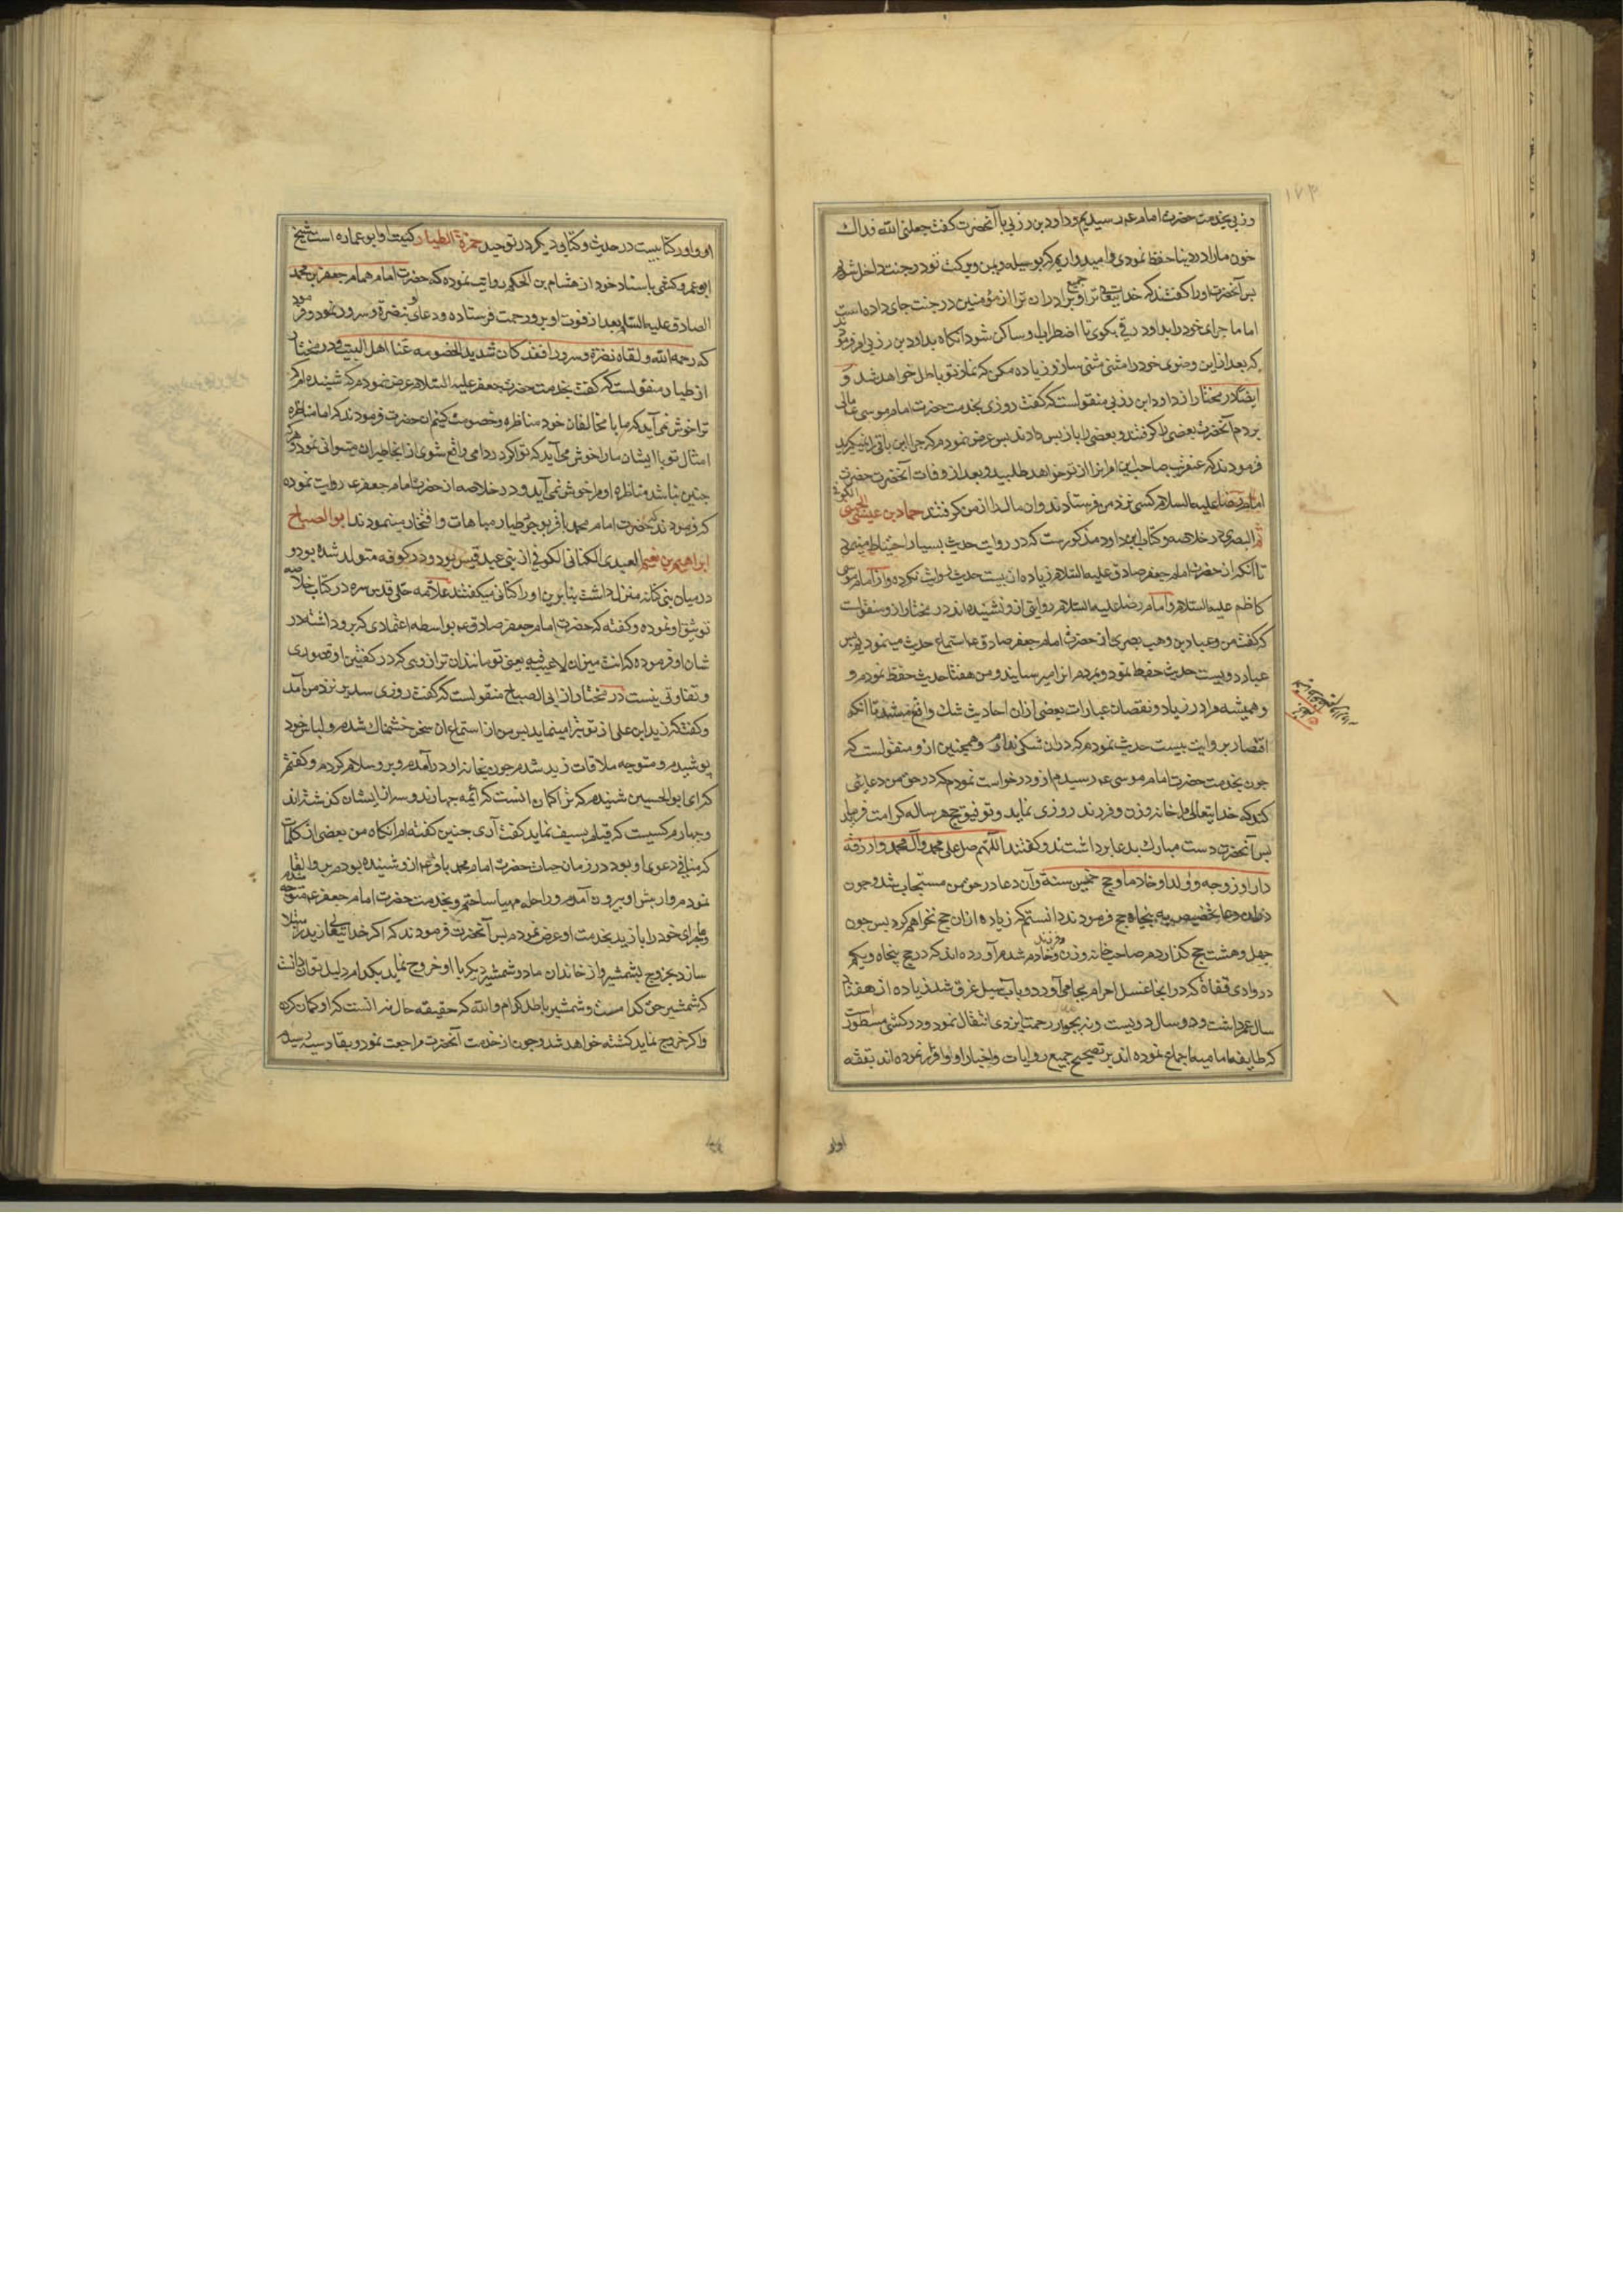 ۱۷۳
رزبی بخدمت حضرت امام عم رسیدیم و داود بن رزبی با آنحضرت کفت جعلنی الله فداک
خون مارا در دنیا حفظ نمودی و امیدواریم که بوسیله و یمن و برکت تو در جنت داخل شویم
بس آنحضرت اورا کفتند که خدایتعالی ترا و جمیع برادران ترا از مؤمنین در جنت جای داده است
اما ماجرای خود را بداود رقی بکوی تا اضطراب او ساکن شود انکاه بداود بن رزبی امر فرمودند
که بعد از این وضوی خود را مثنی مثنی ساز و زیاده مکن که نماز تو باطل خواهد شد و
ایضا در مختار از داود ابن رزبی منقولست که کفت روزی بخدمت حضرت امام موسی ع مالی
بردم آنحضرت بعضی را کرفتند و بعضی را باز بس دادند بس عرض نمودم که جرا این باقی را نمیکیرید
فرمودند که عنقریب صاحب این امر انرا از تو خواهد طلبید و بعد از وفات آنحضرت حضرت
امام رضا علیه السلام کسی نزد من فرستادند وان مال را از من کرفتند حماد بن عیسی الجهنی الکوفی
ثم البصری در خلاصه و کتاب ابن داود مذکورست که در روایت حدیث بسیار احتیاط مینمود
تا آنکه از حضرت امام جعفر صادق علیه السلام زیاده از بیست حدیث روایت نکرده و از امام موسی
کاظم علیه السلام و امام رضا علیه السلام روایتی از و نشنیده اند در مختار از و منقولست
که کفته من و عباد بن وهب بصری از حضرت امام جعفر صادق ع استماع حدیث مینمودیم بس
عباد دویست حدیث حفظ نمود و بمردم انرا میرسانید و من هفتاد حدیث حفظ نمودم و
و همیشه مرا در زیاد و نقصان عبارات بعضی ازان احادیث شک واقع میشد تا انکه
اقتصار بر روایت بیست حدیث نمودم که دران شکی نماند و همچنین از و منقولست که
جون بخدمت حضرت امام موسی عم رسیدم از و درخواست نمودم که در حق من دعائی
کند که خدایتعالی مرا خانه و زن و فرزند روزی نماید و توفیق حج هر ساله کرامت فرماید
بس آنحضرت دست مبارک بدعا برداشتند و کفتند اللهم صل علی محمد وآل محمد وارزقه
دارا و زوجه و ولدا و خادما و حج خمسین سنة و آن دعا در حق من مستجاب شد و جون
دران دعا تخصیص به پنجاه حج فرمودند دانستم که زیاده ازان حج نخواهم کرد بس جون
جهل و هشت حج کذاردم صاحب خانه و زن و فرزند و خادم شدم آورده اند که در حج پنجاه ویکم
در وادی قناة که در انجا غسل احرام بجا می آورد و باب سیل غرق شد زیاده از هفتاد
سال عمر داشت و در سال دویست و نه بجوار رحمت ایزدی انتقال نمود و در کشی مسطورست
که طایفه امامیه اجماع نموده اند بر تصحیح جمیع روایات و اخبار او و اقرار نموده اند بثقه
او و اورا کتابیست در حدیث و کتابی دیکر در توحید حمزة الطیار کنیت او ابو عماره است شیخ
ابو عمرو کشی باسناد خود از هشام بن الحکم روایت نموده که حضرت امام همام جعفر بن محمد
الصادق علیه السلام بعد از فوت او برو رحمت فرستاده و دعای بنضرة و سرور نمود و فرمود
که رحمه الله و لقاه نضرة و سرورا فقد کان شدید الخصومه عنا اهل البیت و در مختار
از طیار منقولست که کفت بخدمت حضرت جعفر علیه السلام عرض نمودم که شنیده ام که
ترا خوش نمی آید که ما با مخالفان خود مناظره و خصومت کنیم ان حضرت فرمودند که اما مناظره
امثال تو با ایشان مارا خوش می آید که تو اکر در دامی واقع شوی از انجا طیران میتوانی نمود و هر که
جنین نباشد مناظره او مرا خوش نمی آید و در خلاصه از حضرت امام جعفر ع روایت نموده
که فرمودند که حضرت امام محمد باقر بوجود طیار مباهات و افتخار مینمودند ابو الصباح
ابراهیم بن نعیم العبدی الکنانی الکوفی از بنی عبد قیس بود و در کوفه متولد شده بود و
در میان بنی کنانه منزل داشت بنابرین اورا کنانی میکفتند علامه حلی قدس سره در کتاب خلاصه
توثیق او نموده و کفته که حضرت امام جعفر صادق عم بواسطه اعتمادی که برو داشته در
شان او فرموده که انت میزان لا عیب فیه یعنی تو مانند ان ترازوئی که در کفتین او قصوری
و تفاوتی نیست در مختار از ابی الصباح منقولست که کفت روزی سدیر نزد من آمد
و کفت که زید ابن علی از تو تبرا مینماید بس من از استماع ان سخن خشمناک شدم و لباس خود
پوشیدم و متوجه ملاقات زید شدم جون بخانه او درآمدم و برو سلام کردم و کفتم
که ای ابو الحسین شنیدم که ترا کمان انست که ائمه جهارند و سه از ایشان کذشته اند
و جهارم کسیست که قیام بسیف نماید کفت آری جنین کفته ام انکاه من بعضی از کلمات
که منافی دعوی او بود در زمان حیات حضرت امام محمد باقر ع از و شنیده بودم برو القا
نمودم و از بیش او بیرون آمدم و راحله مهیا ساختم و بخدمت حضرت امام جعفر عم متوجه شدم
و ماجرای خود را با زید بخدمت او عرض نمودم بس آنحضرت فرمودند که اکر خدایتعالی زید را مبتلا
سازد بخروج بشمشیر و از خاندان ما دو شمشیر دیکر با او خروج نماید بکدام دلیل توان دانست
که شمشیر حق کدامست و شمشیر باطل کدام والله که حقیقه حال نه انست که او کمان کرده
و اکر خروج نماید کشته خواهد شد و جون از خدمت آنحضرت مراجعت نمود و بقادسیه رسیدم